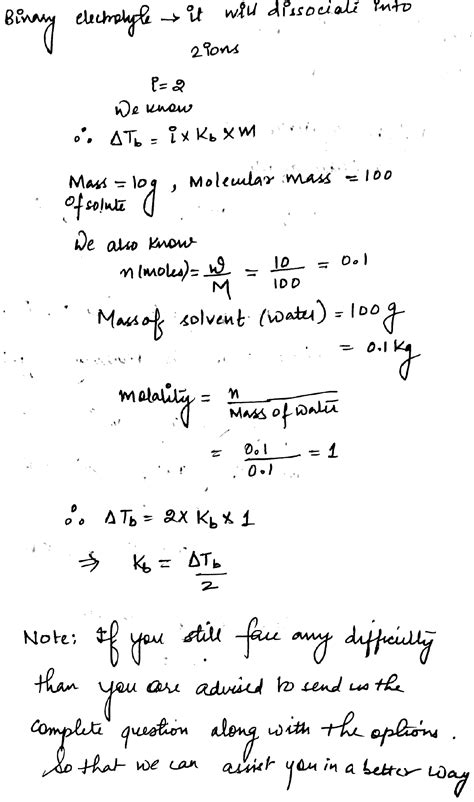 Binary electrolyte → it will dissociate into
2 ions
i = 2
We know
∴ ΔTb = i × Kb × m
Mass = 10g , Molecular mass = 100
of solute
We also know
n (moles) = w/M = 10/100 = 0.1
Mass of solvent (water) = 100 g
= 0.1 kg
molality = n / Mass of water
= 0.1/0.1 = 1
∴ ΔTb = 2 × Kb × 1
⇒ Kb = ΔTb/2
Note: If you still face any difficulty
than you are advised to send us the
complete question along with the options.
So that we can assist you in a better way